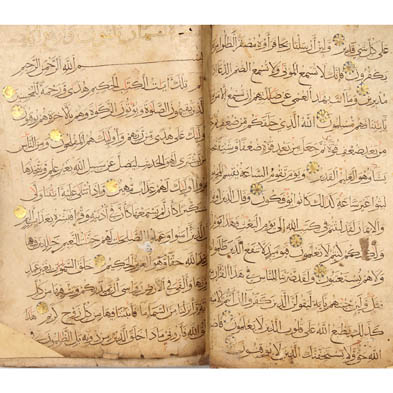 على كل شيء قدير ولئن أرسلنا ريحا فرأوه مصفرا لظلوا من بعده
يكفرون فإنك لا تسمع الموتى ولا تسمع الصم الدعاء إذا ولوا
مدبرين وما أنت بهاد العمي عن ضلالتهم إن تسمع إلا من يؤمن
بآياتنا فهم مسلمون الله الذي خلقكم من ضعف ثم جعل
من بعد ضعف قوة ثم جعل من بعد قوة ضعفا وشيبة يخلق ما
يشاء وهو العليم القدير ويوم تقوم الساعة يقسم المجرمون ما
لبثوا غير ساعة كذلك كانوا يؤفكون وقال الذين أوتوا العلم
والإيمان لقد لبثتم في كتاب الله إلى يوم البعث فهذا يوم
البعث ولكنكم كنتم لا تعلمون فيومئذ لا ينفع الذين ظلموا
ولا هم يستعتبون ولقد ضربنا للناس في هذا القرآن من كل
مثل ولئن جئتهم بآية ليقولن الذين كفروا إن أنتم إلا مبطلون
كذلك يطبع الله على قلوب الذين لا يعلمون فاصبر إن وعد
الله حق ولا يستخفنك الذين لا يوقنون
بسم الله الرحمن الرحيم
الم تلك آيات الكتاب الحكيم هدى ورحمة للمحسنين
الذين يقيمون الصلوة ويؤتون الزكوة وهم بالآخرة هم يوقنون
أولئك على هدى من ربهم وأولئك هم المفلحون ومن الناس
من يشتري لهو الحديث ليضل عن سبيل الله بغير علم ويتخذها
هزوا أولئك لهم عذاب مهين وإذا تتلى عليه آياتنا ولى
مستكبرا كأن لم يسمعها كأن في أذنيه وقرا فبشره بعذاب أليم
إن الذين آمنوا وعملوا الصالحات لهم جنات النعيم خالدين فيها
وعد الله حقا وهو العزيز الحكيم خلق السموات بغير عمد
ترونها وألقى في الأرض رواسي أن تميد بكم وبث فيها من كل دابة
وأنزلنا من السماء ماء فأنبتنا فيها من كل زوج كريم هذا
خلق الله فأروني ماذا خلق الذين من دونه بل الظالمون في